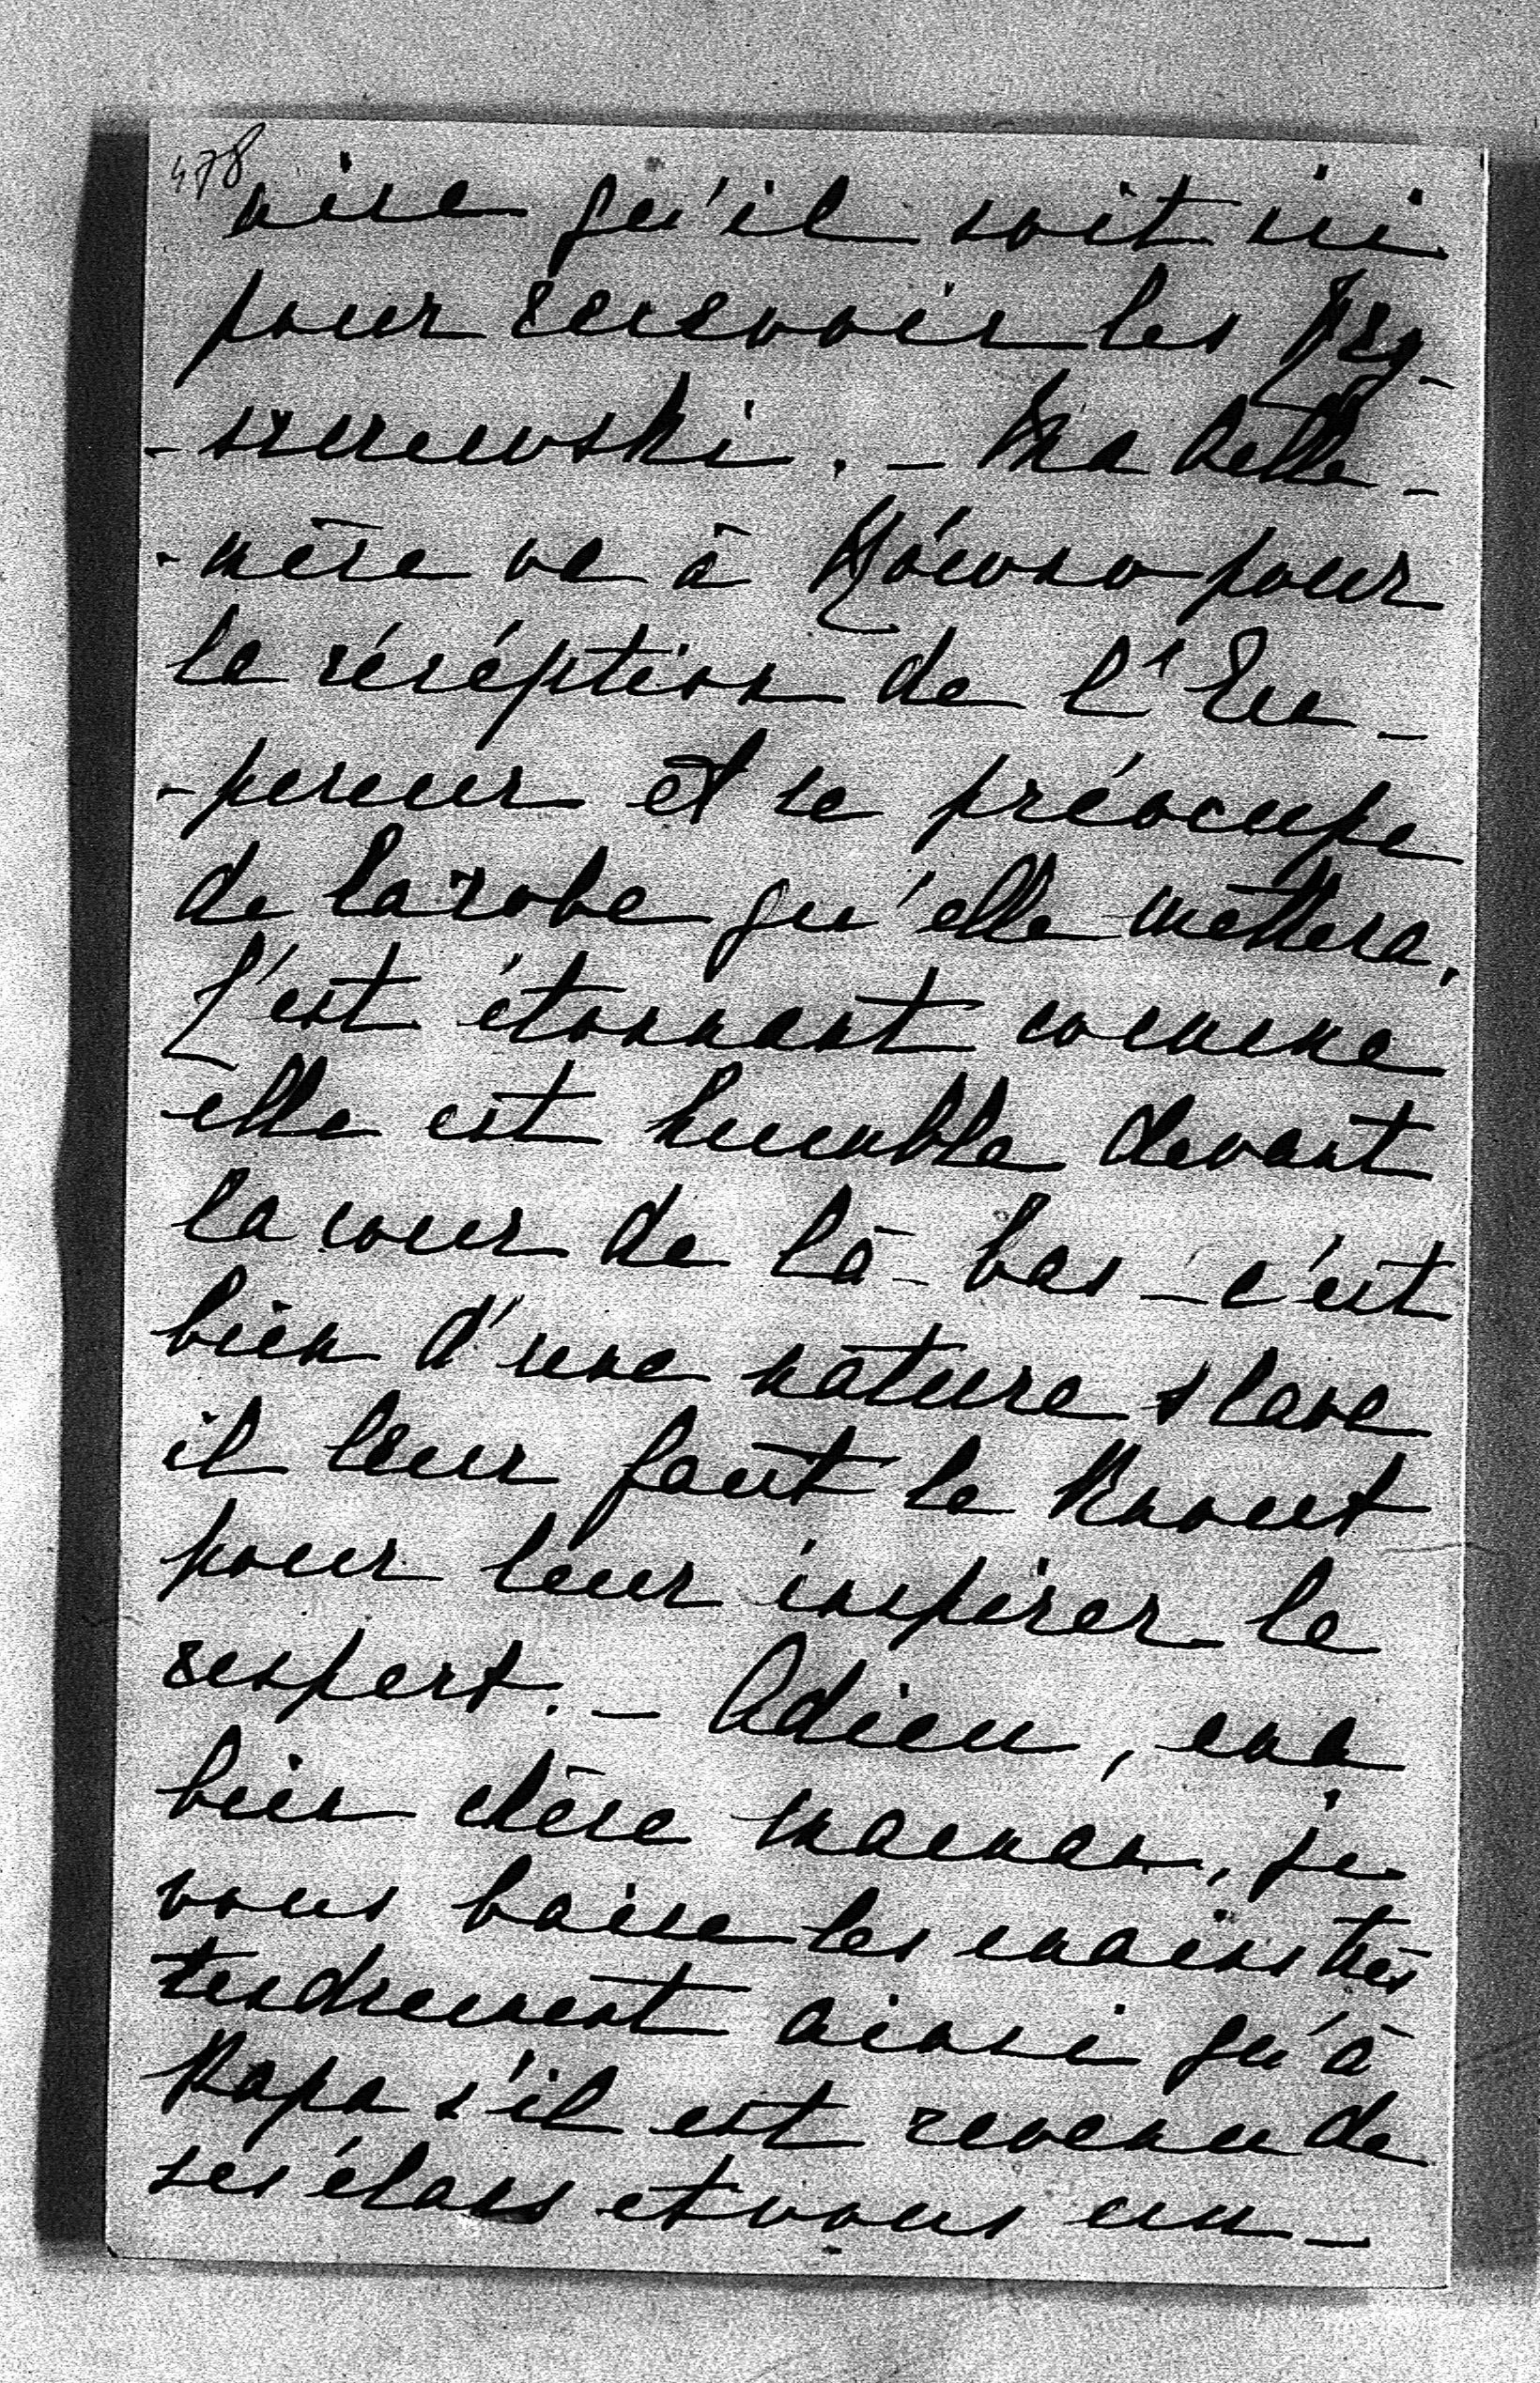 478
aise qu'il soit ici
pour recevoir les Prz-
-szerewski. - Ma belle-
-mère va à Kówno pour
la récéption de l'Em-
-pereur et se préocupe
de la robe qu'elle mettera.
C'est étonnant comme
elle est humble devant
la cour de là-bas - c'est
bien d'une nature slave
il leur faut le Knout
pour leur inspirer le
respect. - Adieu, ma
bien chère Maman, je
vous baise les mains très
tendrement ainsi qu'à
Papa s'il est revenu de
ses élans et vous em-